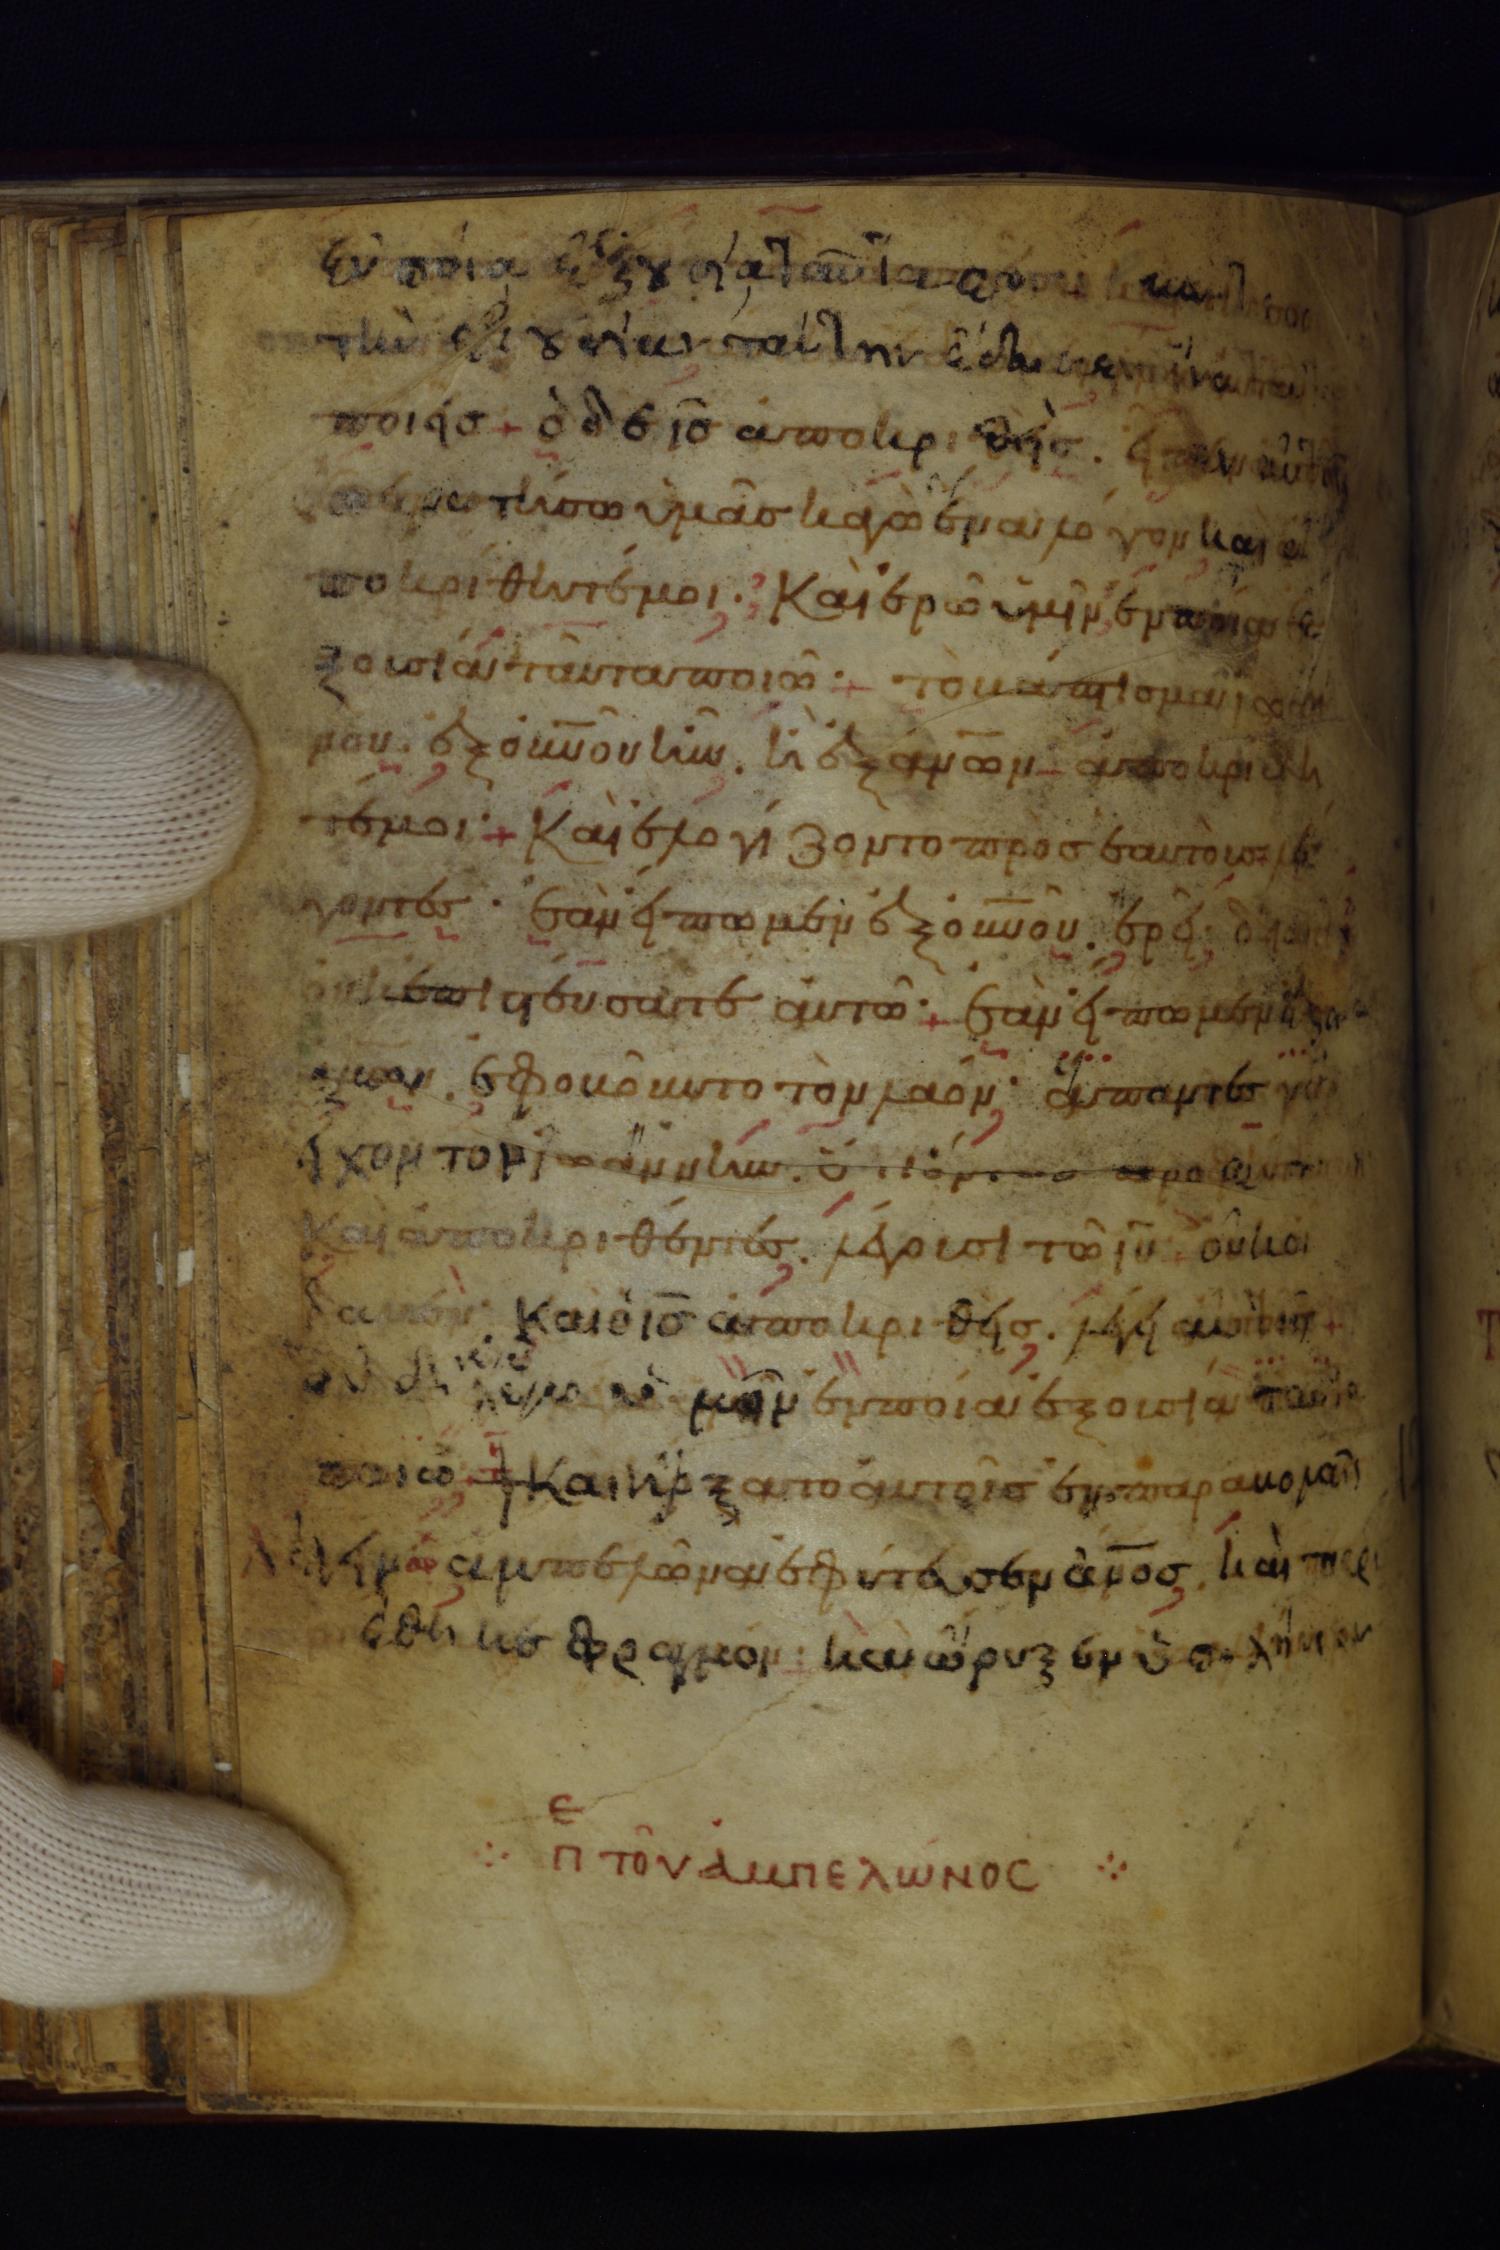 ἐν ποία ἐξουσία ταῦτα
τὴν ἐξουσίαν ταύτην ἔδωκεν ἵνα ταῦτα
ποιῇς + ὁ δὲ ι̅σ̅ ἀποκριθεὶς. εἶπεν αὐτοῖς
ἐπερωτήσω ὑμᾶσ κἀγὼ ἕνα λόγον καὶ ἀ
ποκρίθητέ μοι. Καὶ ἐρῶ ὑμῖν ἐν ποία ἐ
ξουσία ταῦτα ποιῶ + τὸ βάπτισμα ἰωάν
νου. ἐξ ο̅υ̅νοῦ ἦν. ἢ ἐξ α̅ν̅ων ἀποκρίθη
τέ μοι + Καὶ ἐλογίζοντο πρὸσ ἑαυτοὺσ λέ
γοντες. ἐὰν εἴπωμεν ἐξ ο̅υ̅νοῦ. ἐρεῖ
οὐκ ἐπιστεύσατε αὐτῶ + ἐὰν εἴπωμεν ἐξ
α̅ν̅ων. ἐφοβοῦντο τὸν λαόν. ἅπαντες γὰρ
εἶχον τὸν ἰωάννην. ὄντως προφήτην
Καὶ ἀποκριθέντες. λέγουσι τῶ ι̅υ̅ οὐκ οἴ
δαμεν. Καὶ ὁ ι̅σ̅ ἀποκριθεὶσ. λέγει αὐτοῖσ +
οὐδὲ ἐγὼ λέγω ὑμῖν ἐν ποία ἐξουσία ταῦτα
ποιῶ + Καὶ ἤρξατο αὐτοῖσ ἐν παραβολαῖς
λέγειν ἀμπελῶνα ἐφύτευσεν α̅ν̅οσ. καὶ περι
έθηκε φραγμὸν. καὶ ὤρυξεν ὑπολήνιον
π̅ε̅ τοῦ ἀμπελῶνος